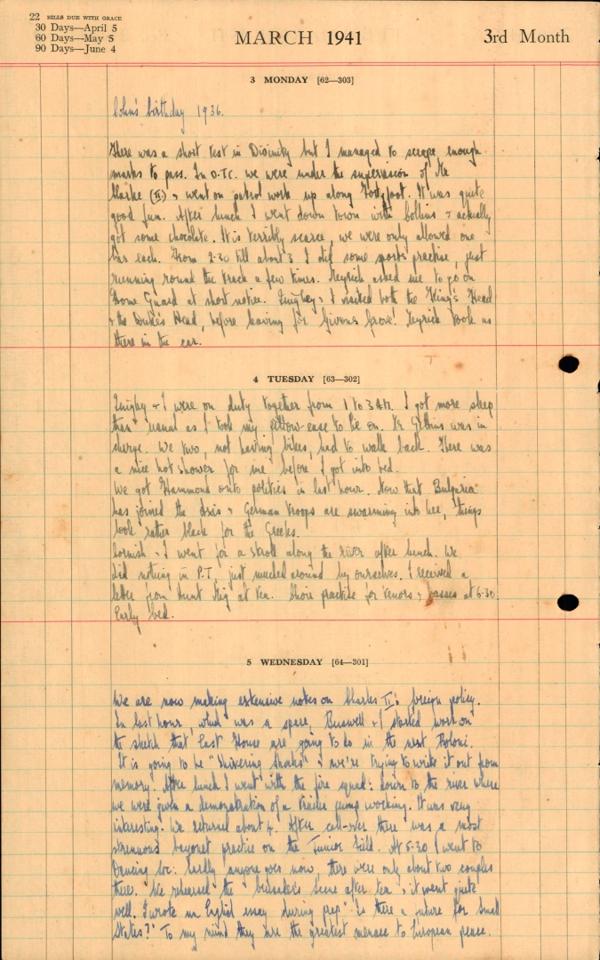 22 BILLS DUE WITH GRACE
30 Days—April 5
60 Days—May 5
90 Days—June 4
MARCH 1941
3rd Month
3 MONDAY [62—303]
John's birthday 1936.
There was a short test in Divinity but I managed to scrape enough
marks to pass. In O.T.C. we were under the supervision of Mr
Clarke (II) & went on patrol work up along. It was quite
good fun. After lunch I went down town with Collins & actually
got some chocolate. It is terribly scarce, we were only allowed one
bar each. From 2.30 till about 3 I did some sports practise, just
running round the track a few times. asked me to go on
Home Guard at short notice. Quigley & I visited both the King's Head
& the Duke's Head, before leaving for Givons Grove! took us
there in the car.
4 TUESDAY [63—302]
Quigley & I were on duty together from 1 to 3 a.m. I got more sleep
than usual as I took my pillow-case to lie on. Mr was in
charge. We two, not having bikes, had to walk back. There was
a nice hot shower for me before I got into bed.
We got Hammond onto politics in last hour. Now that Bulgaria
has joined the Axis & German troops are swarming into her, things
look rather black for the Greeks.
Cornish & I went for a stroll along the river after lunch. We
did nothing in P.T. just mucked around by ourselves. I received a
letter from Aunt at tea. Choir practise for tenors & basses at 6.30.
Early bed.
5 WEDNESDAY [64—301]
We are now making extensive notes on Charles II's foreign policy.
In last hour, which was a spare, Buswell & I started work on
the sketch that East House are going to do in the next.
It is going to be "Shivering Shocks" & we're trying to write it out from
memory. After lunch I went with the fire squad down to the river where
we were given a demonstration of a trailer pump working. It was very
interesting. We returned about 4. After call-over there was a most
strenuous bayonet practise on the Junior field. At 5.30 I went to
Dancing. Hardly anyone goes now, there were only about two couples
there. We rehearsed the scene after tea & it went quite
well. I wrote an English essay during prep "Is there a future for Small
States?" To my mind they are the greatest menace to European peace.